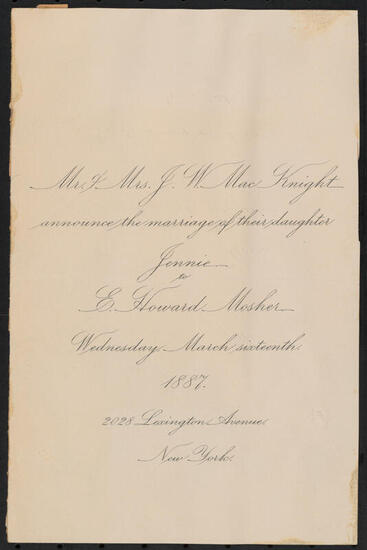 Mr. & Mrs. J. W. Mac Knight
announce the marriage of their daughter
Jennie
to
E. Howard Mosher
Wednesday March sixteenth
1887.
2028 Lexington Avenue
New York.